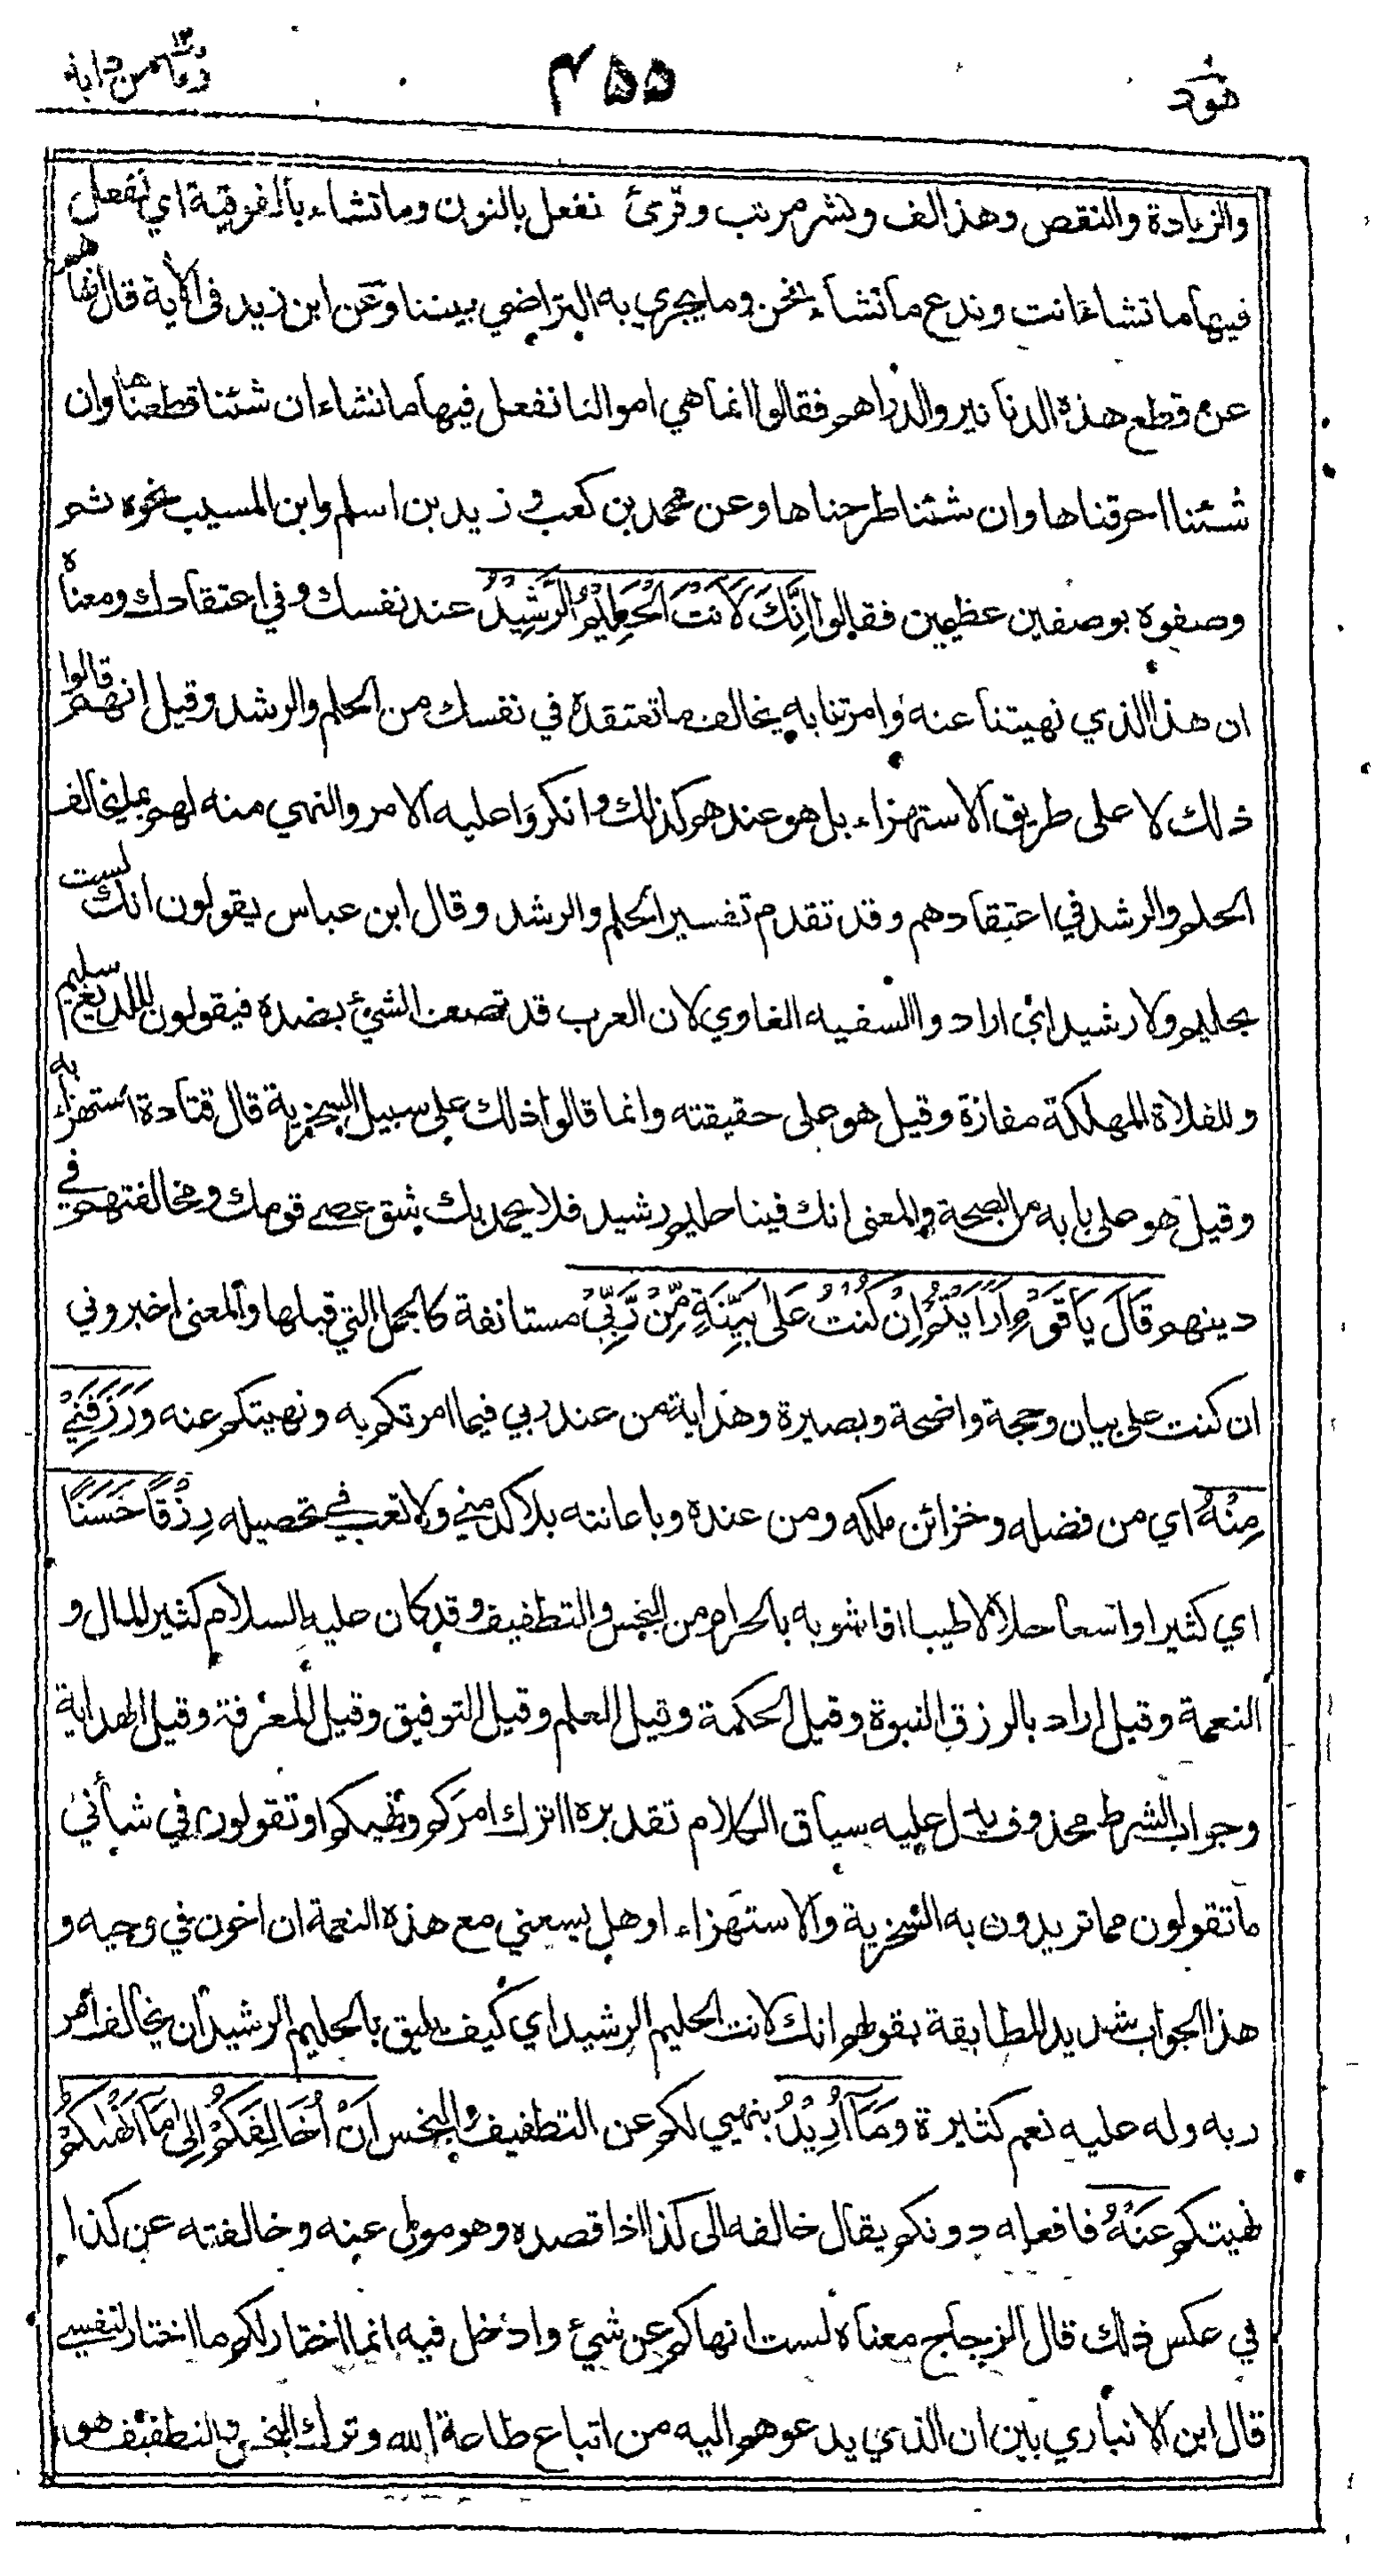 هود
۴۵۵
ومامن دابة ۱۲
والزيادة والنقص وهذا لف ونشر مرتب وقرئ نفعل بالنون وما تشاء بالفوقية اي نفعل
فيها ما تشاء انت وندع ما نشاء نحن وما يجري به التراضي بيننا وعن ابن زيد فى الآية قال نهاهم
عن قطع هذه الدنانير والدراهم فقالوا انما هي اموالنا نفعل فيها ما نشاء ان شئنا قطعناها وان
شئنا احرقناها وان شئنا طرحناها وعن محمد بن كعب و زيد بن اسلم وابن المسيب نحوه ثم
وصفوه بوصفين عظيمين فقالوا اِنَّكَ لَاَنْتَ الْحَلِيْمُ الرَّشِيْدُ عند نفسك وفي اعتقادك ومعناه
ان هذا الذي نهيتنا عنه وامرتنا به يخالف ما تعتقده في نفسك من الحلم والرشد وقيل انهم قالوا
ذلك لا على طريق الاستهزاء بل هو عندهم كذلك وانكروا عليه الامر والنهي منه لهم بما يخالف
الحلم والرشد في اعتقادهم وقد تقدم تفسير الحلم والرشد وقال ابن عباس يقولون انك لست
بحليم ولا رشيد اي ارادوا السفيه الغاوي لان العرب قد تصف الشيئ بضده فيقولون للديغ سليم
وللفلاة المهلكة مفازة وقيل هو على حقيقته وانما قالوا ذلك على سبيل السخرية قال قتادة استهزاء به
وقيل هو على بابه من الصحة والمعنى انك فينا حليم رشيد فلا يحمد بك شق عصے قومك ومخالفتهم في
دينهم قَالَ يَاقَوْمِ اَرَاَيْتُمْ اِنْ كُنْتُ عَلٰى بَيِّنَةٍ مِّنْ رَّبِّيْ مستانفة كالجمل التي قبلها والمعنى اخبروني
ان كنت على بيان وحجة واضحة وبصيرة وهداية من عند ربي فيما امرتكم به ونهيتكم عنه وَرَزَقَنِيْ
مِنْهُ اي من فضله وخزائن ملكه ومن عنده وباعانته بلا كد مني ولا تعب في تحصيله رِزْقًا حَسَنًا
اي كثيرا واسعا حلالا طيبا افاشوبه بالحرام من البخس والتطفيف وقد كان عليه السلام كثير المال و
النعمة وقيل اراد بالرزق النبوة وقيل الحكمة وقيل العلم وقيل التوفيق وقيل المعرفة وقيل الهداية
وجواب الشرط محذوف يدل عليه سياق الكلام تقديره أاترك امركم ونهيكم او تقولون في شأني
ما تقولون مما تريدون به السخرية والاستهزاء او هل يسعني مع هذه النعمة ان اخون في وحيه و
هذا الجواب شديد المطابقة بقولهم انك لانت الحليم الرشيد اي كيف يليق بالحليم الرشيد ان يخالف امر
ربه وله عليه نعم كثيرة وَمَا اُرِيْدُ بنهيي لكم عن التطفيف والبخس اَنْ اُخَالِفَكُمْ اِلٰى مَا اَنْهٰىكُمْ
نهيتكم عَنْهُ فافعله دونكم يقال خالفه الى كذا اذا قصده وهو مولٍ عنه وخالفته عن كذا
في عكس ذلك قال الزجاج معناه لست انهاكم عن شيئ وادخل فيه انما اختار لكم ما اختار لنفسے
قال ابن الانباري بين ان الذي يدعوهم اليه من اتباع طاعة الله وترك البخس والتطفيف هو